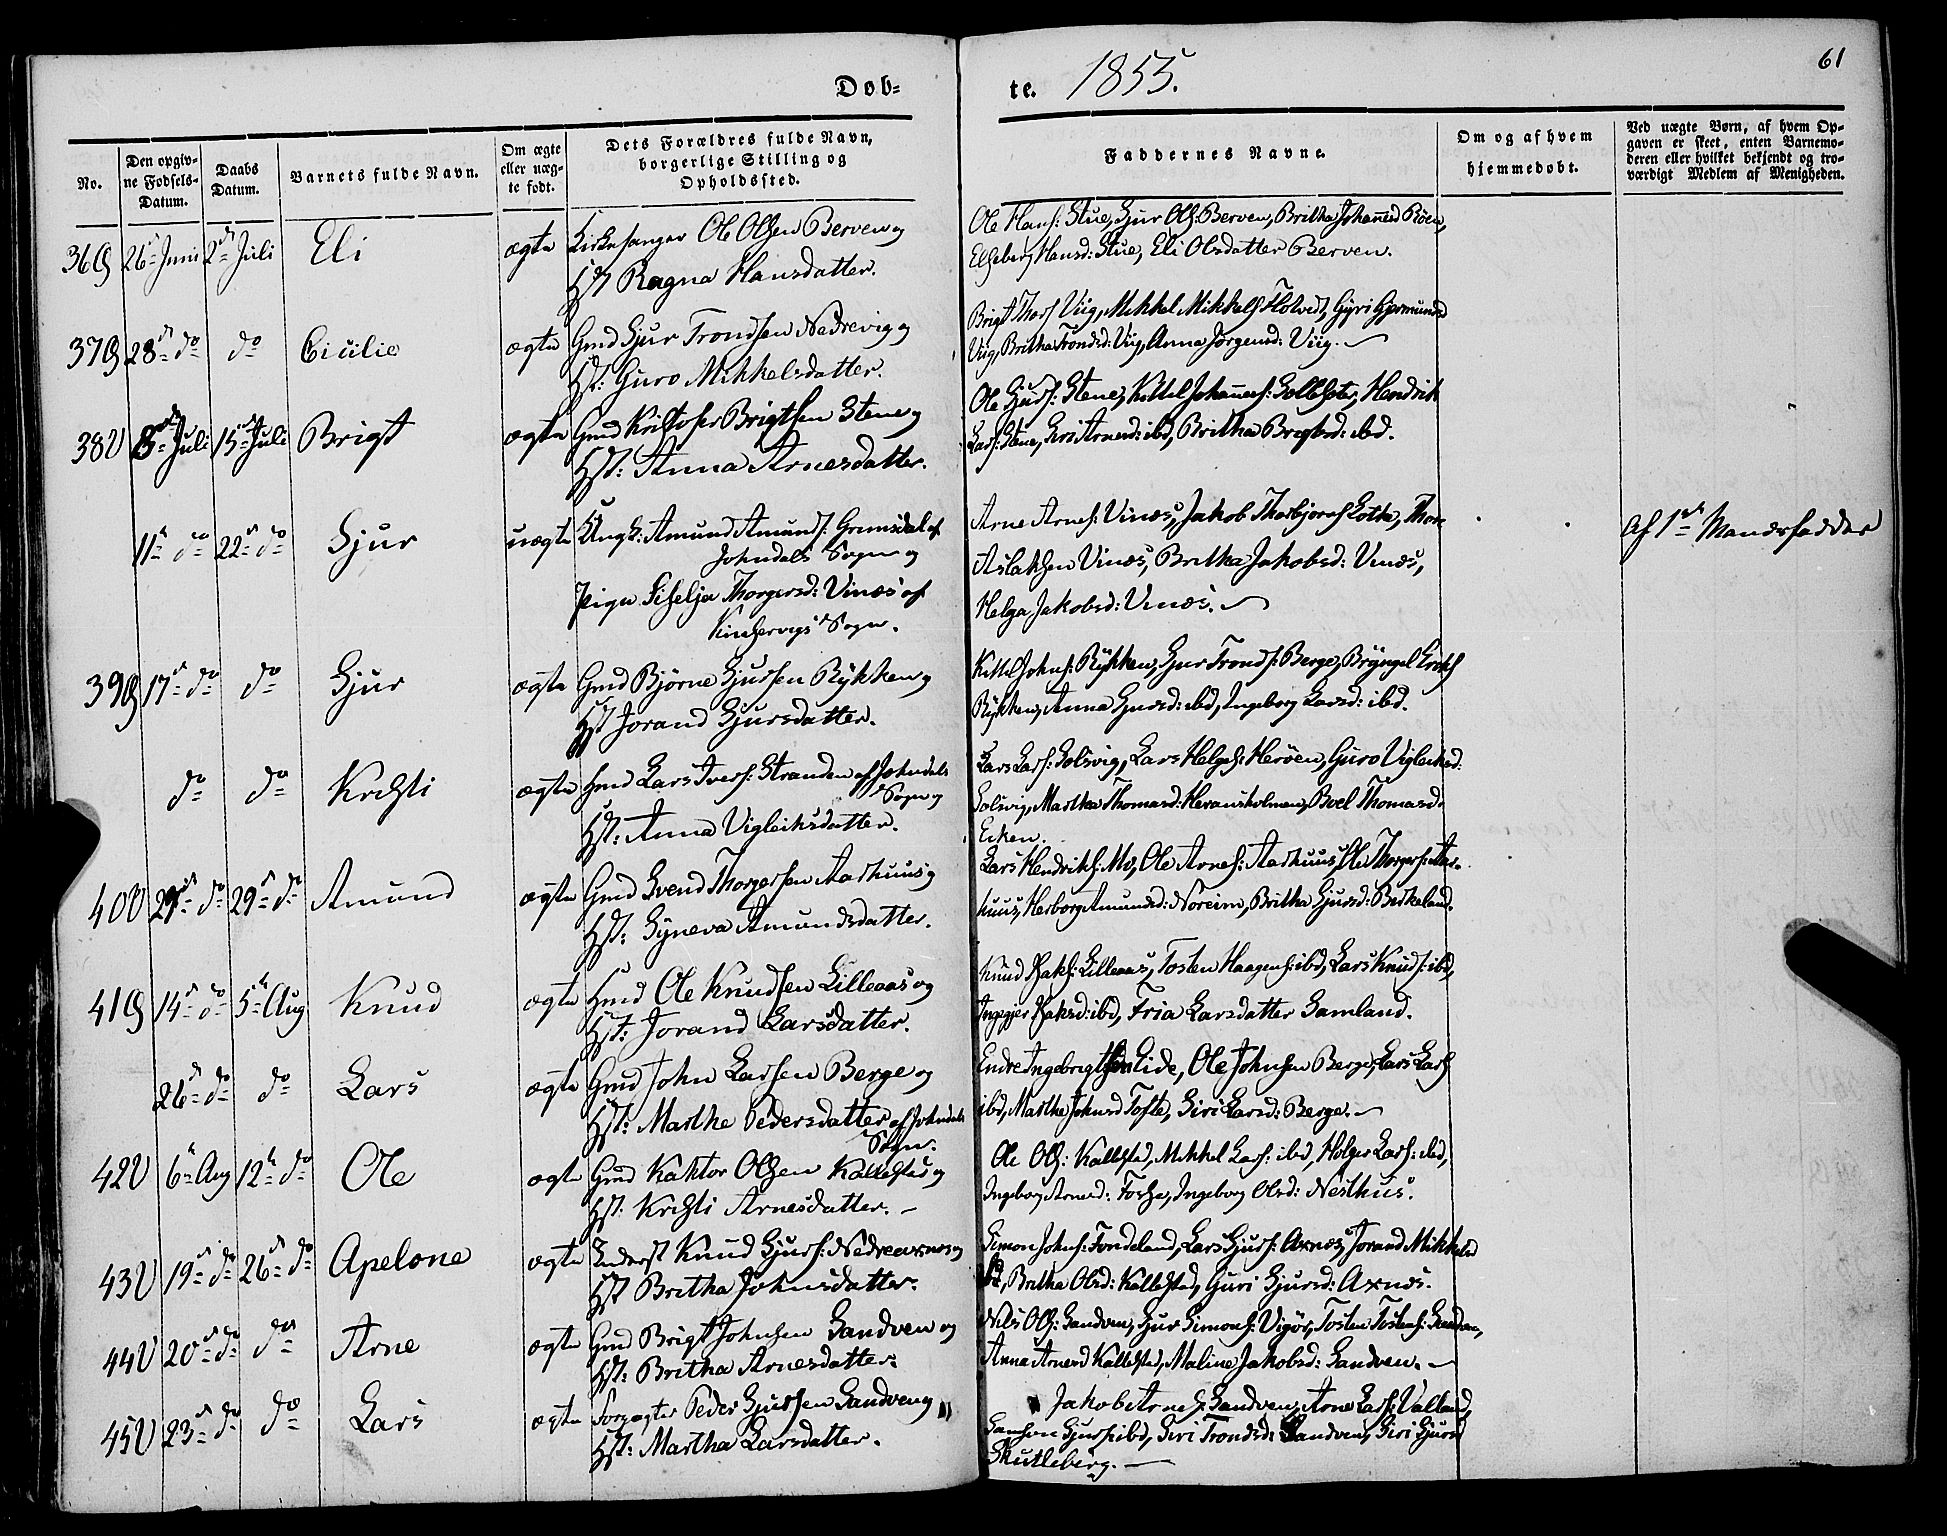 61
Døb-
te. 1855.
No.
Den opgiv-
ne Fødsels-
Datum.
Daabs
Datum.
Barnets fulde Navn.
Om ægte
eller uæg-
te født.
Dets Forældres fulde Navn,
borgerlige Stilling og
Opholdssted.
Faddernes Navne.
Om og af hvem
hjemmedøbt.
Ved uægte Børn, af hvem Op-
gaven er skeet, enten Barnemo-
deren eller hvilket bekjendt og tro-
værdigt Medlem af Menigheden.
36 26 Juni 2 Juli Eli ægte Kirkesanger Ole Olsen Berven og
Hst Ragna Hansdatter.
Ole Hans: Stue, Sjur Ols: Berven, Britha Johannesd Röen,
Elseberg Hansd: Stue, Eli Olsdatter Berven.
37 28 do do Cicilie ægte Gmd Sjur Trondsen Nedrevig og
Hst: Guro Mikkelsdatter.
Brigt Thors Viig, Mikkel Mikkels Flotvedt, Gyri Gjermunds
Viig, Britha Trondsd: Viig, Anna Jörgensd: Viig.
38 8 Juli 15 Juli Brigt ægte Gmd Kristofer Brigtsen Stene og
Hst: Anna Arnesdatter.
Ole Sjurs: Stene, Kittel Johannes: Sollester, Hendrik
Lars: Stene, Siri Arnesd: ibd, Britha Brigtsd: ibd.
11 do 22 do Sjur uægte Ungk: Amund Amunds: Grimsdal af
Johndals Sogn og
Pige Siselja Thorgersd: Vinæs af
Kinservigs Sogn.
Arne Arnes: Vinæs, Jakob Thorbjörns Lothe, Thor
Aslaksen Vinæs, Britha Jakobsd: Vinæs,
Helga Jakobsd: Vinæs.
Af 1 Mandsfadder
39 17 do do Sjur ægte Gmd Björne Sjursen Rykken og
Hst Jorand Sjursdatter.
Kittel Johns: Rykken, Sjur Tronds: Berge, Bryngel Eriks
Rykken, Anna Sjursd: ibd, Ingeborg Larsd: ibd.
do do Kristi ægte Hmd Lars Ivers: Stranden af Johndals
Sogn og
Hst: Anna Vigleiksdatter.
Lars Lars: Solsvig, Lars Helges: Heröen, Guro Vigleiksd:
Solsvig, Martha Thomasd: Heransholmen, Boel Thomasd:
Ecken.
40 29 do 29 do Amund ægte Gmd Svend Thorgersen Aarhuus og
Hst: Syneva Amundsdatter.
Lars Hendriks: Mo, Ole Arnes: Aarhuus, Ole Thorgers: Aar-
huus, Herborg Amundsd: Noreim, Britha Sjursd: Birkeland.
41 14 do 5 Aug Knud ægte Hmd Ole Knudsen Lilleaas og
Hst: Jorand Larsdatter.
Knud Isaks: Lilleaas, Tosten Haagens: ibd, Lars Knuds: ibd,
Ingegjer Isaksd: ibd, Tria Larsdatter Samland.
26 do do Lars ægte Gmd John Larsen Berge og
Hst: Marthe Pedersdatter af Johndals
Sogn.
Endre Ingebrigtsen Eide, Ole Johnsen Berge, Lars Lars
ibd, Martha Johnsd Tofte, Siri Larsd: Berge.
42 6 Aug 12 do Ole ægte Gmd Kaktor Olsen Kallestad og
Hst: Kristi Arnesdatter.
Ole Ols: Kallestad, Mikkel Lars: ibd, Holger Lars: ibd,
Ingeborg Arnesd: Fosse, Ingeborg Olsd: Nesthus.
43 19 do 26 do Apelone ægte Inderst Knud Sjurs: Nedreaxnes og
Hst Britha Johnsdatter.
Simon Johns: Tondeland, Lars Sjurs: Axnæs, Jorand Mikkelsd
ibd, Britha Olsd: Kallestad, Guri Sjursd: Axnæs.
44 20 do do Arne ægte Gmd Brigt Johnsen Sandven og
Hst: Britha Arnesdatter.
Nils Ols: Sandven, Sjur Simons: Vigör, Tosten Tostens: Sandven,
Anna Arnesd Kallestad, Maline Jakobsd: Sandven.
45 23 do do Lars ægte Forpagter Peder Sjursen Sandven og
Hst: Martha Larsdatter.
Jakob Arnes: Sandven, Arne Lars: Valland,
Samson Sjurs: ibd, Siri Trondsd: Sandven, Siri Sjursd
Skutleberg.